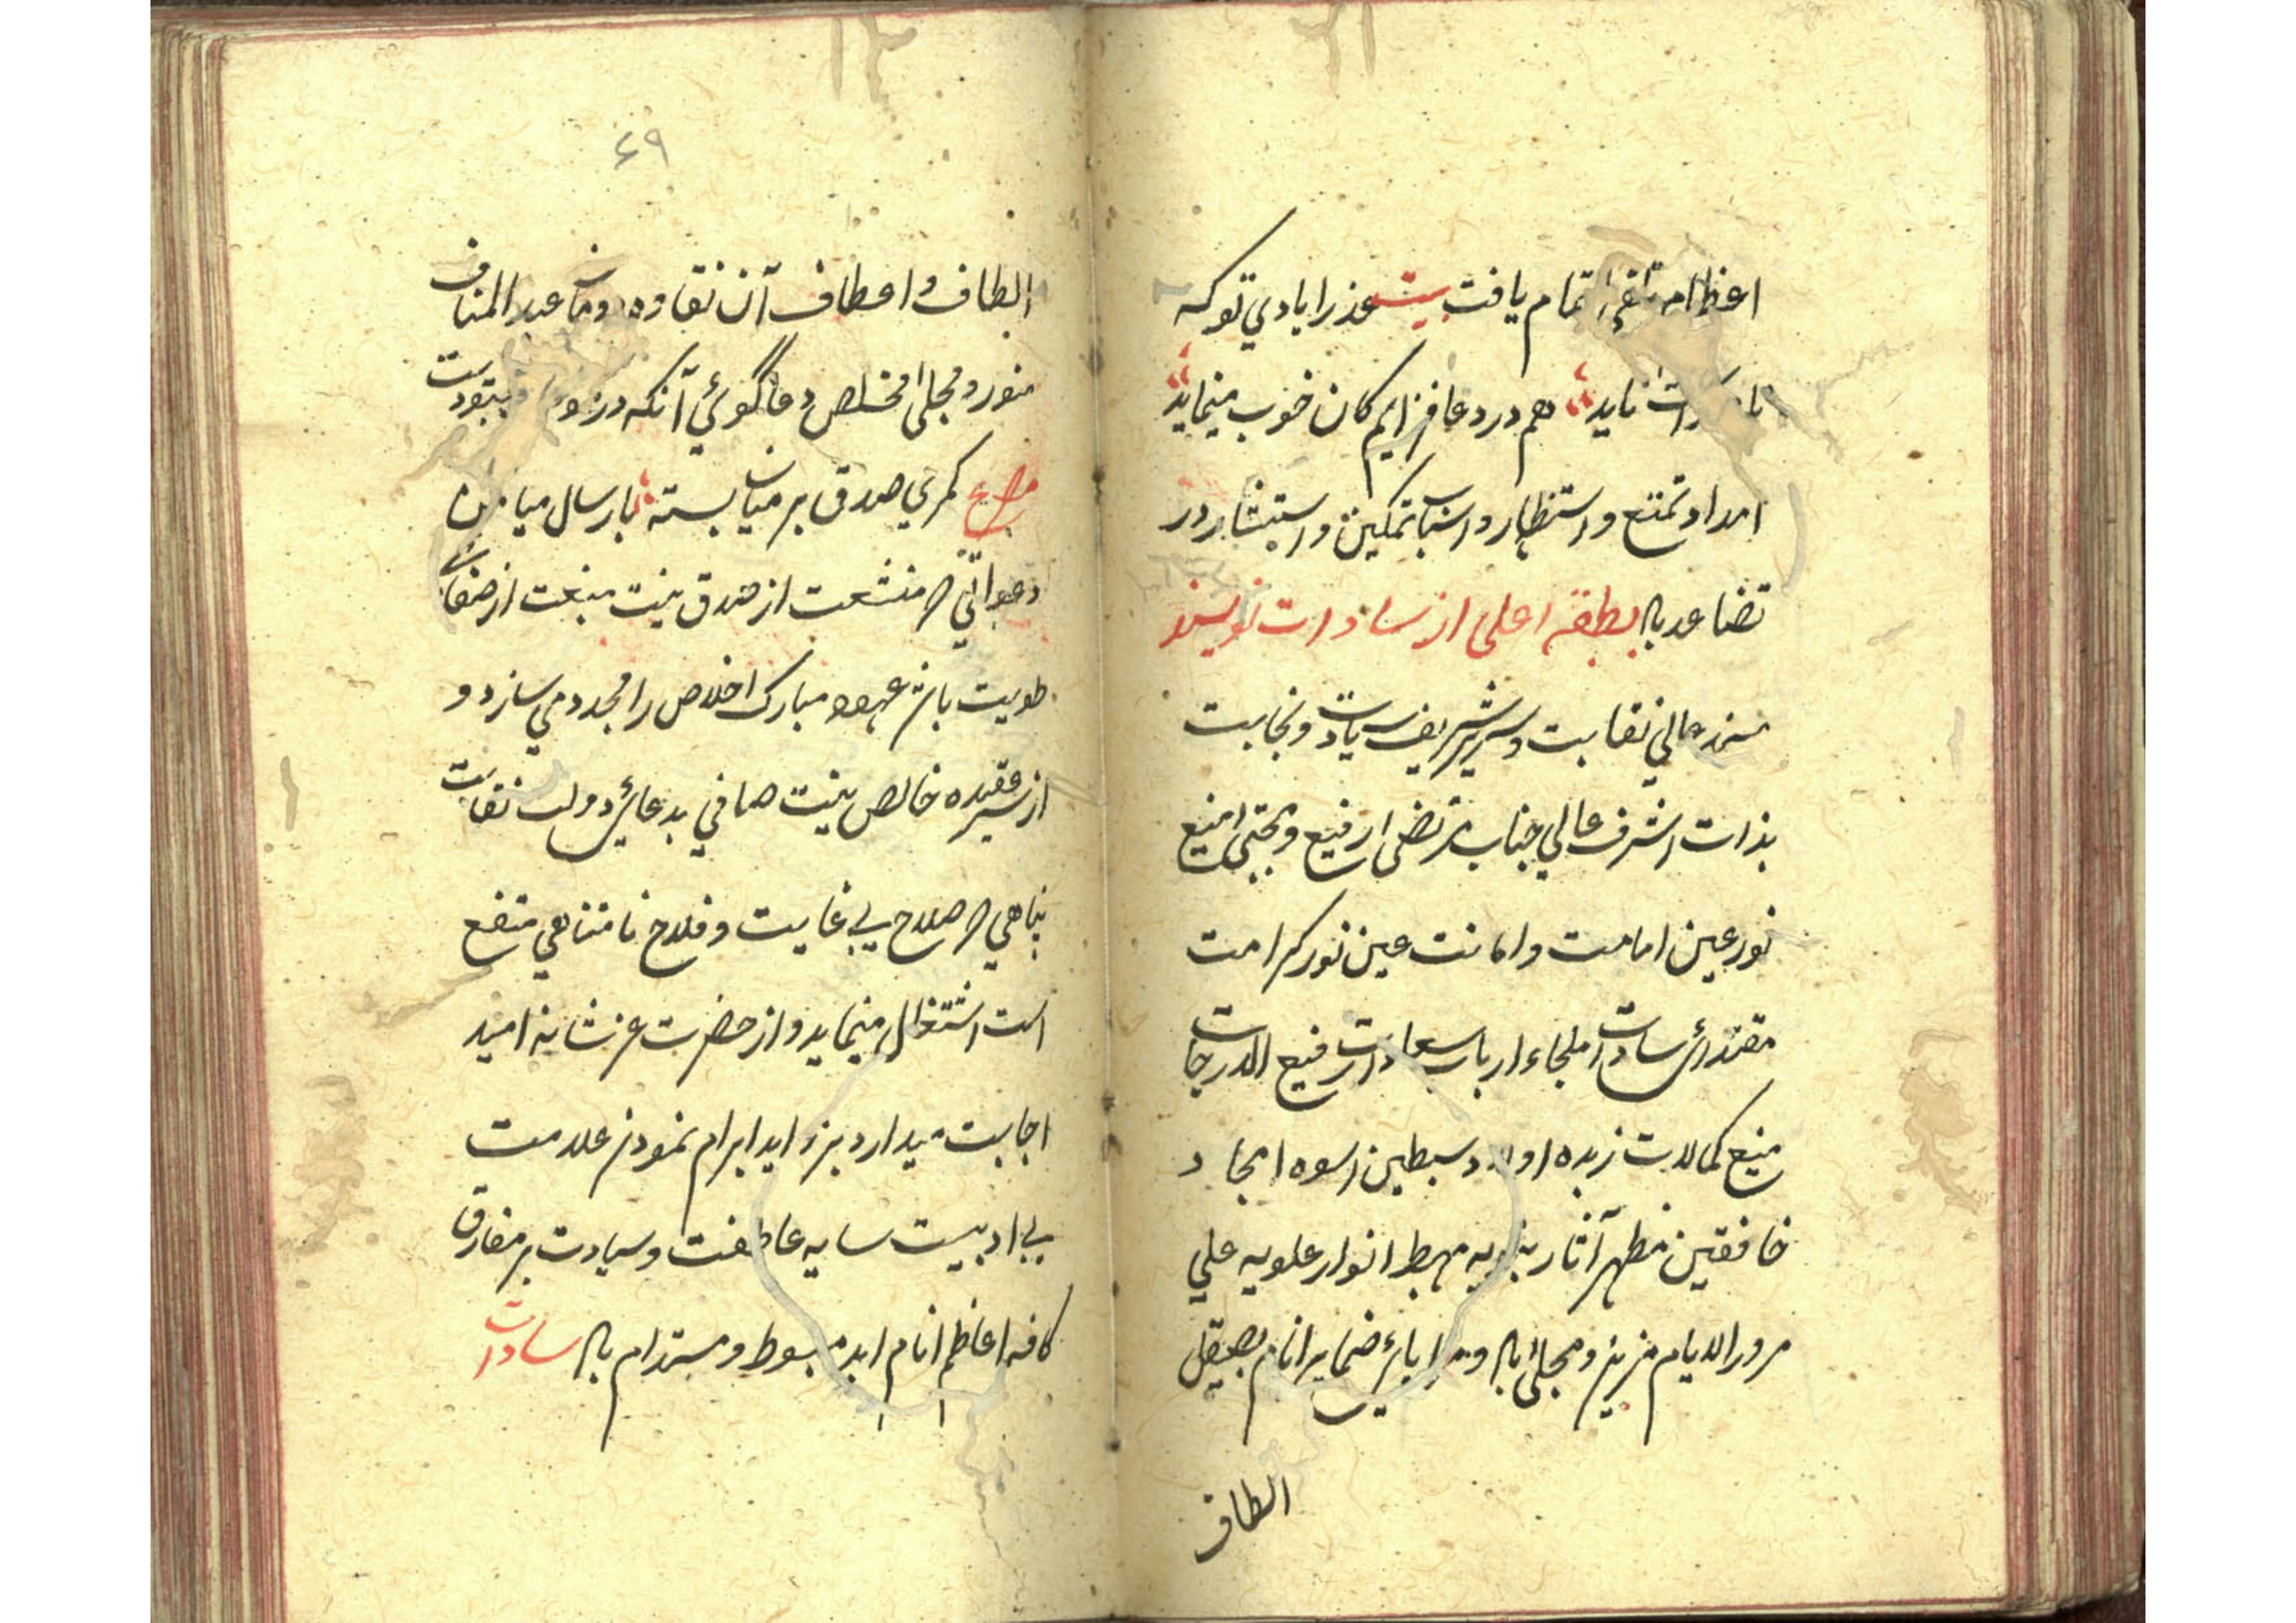 تمام یافت بیت عذر ایادي توکه
ناید هم در دعا فزایم کان خوب مینماید
امداد تمتع و استظهار و اسباب تمکین و استبشار در
تضاعد باد بطبقه اعلی از سادات نویسند
مسند عالي نقابت و سریر شریف سیادت ونجابت
بذات اشرف عالي جناب مرتضی ارفیع و مجتبی امنیع
نور عین امامت و امانت عین نور کرامت
مقتدائ سادات ملجاء ارباب سعادات رفیع الدرجات
منیع کمالات زبده اولاد سبطین اسوه امجاد
خافقین مظهر آثار نبویه مهبط انوار علویه علي
مرور الایام مزین و مجلیٰ باد و ضمایر انام بصیقل
الطاف
۶۹
الطاف و اعطاف آن نقاوه دومان عبد المناف
منور و مجلی مخلص دعاگوئي آنکه در
مصرع کمري صدق بر میان بسته بارسال میامن
دعواتي که منشعبت از صدق نیت منبعث از صفاے
طویت باشد عهود مبارک اخلاص را مجدد مي سازد و
از سر عقیده خالص نیت صافي بدعائ دولت نقابت
پناهي که صلاح بي غایت و فلاح نامتناهي متفع
است اشتغال مینماید و از حضرت عز شانه امید
اجابت میدارد بزواید ابرام نمودن علامت
بي ادبیست سایه عاطفت و سیادت بر مفارق
کافه اعاظم انام ابد مبسوط و مستدام باد سادات